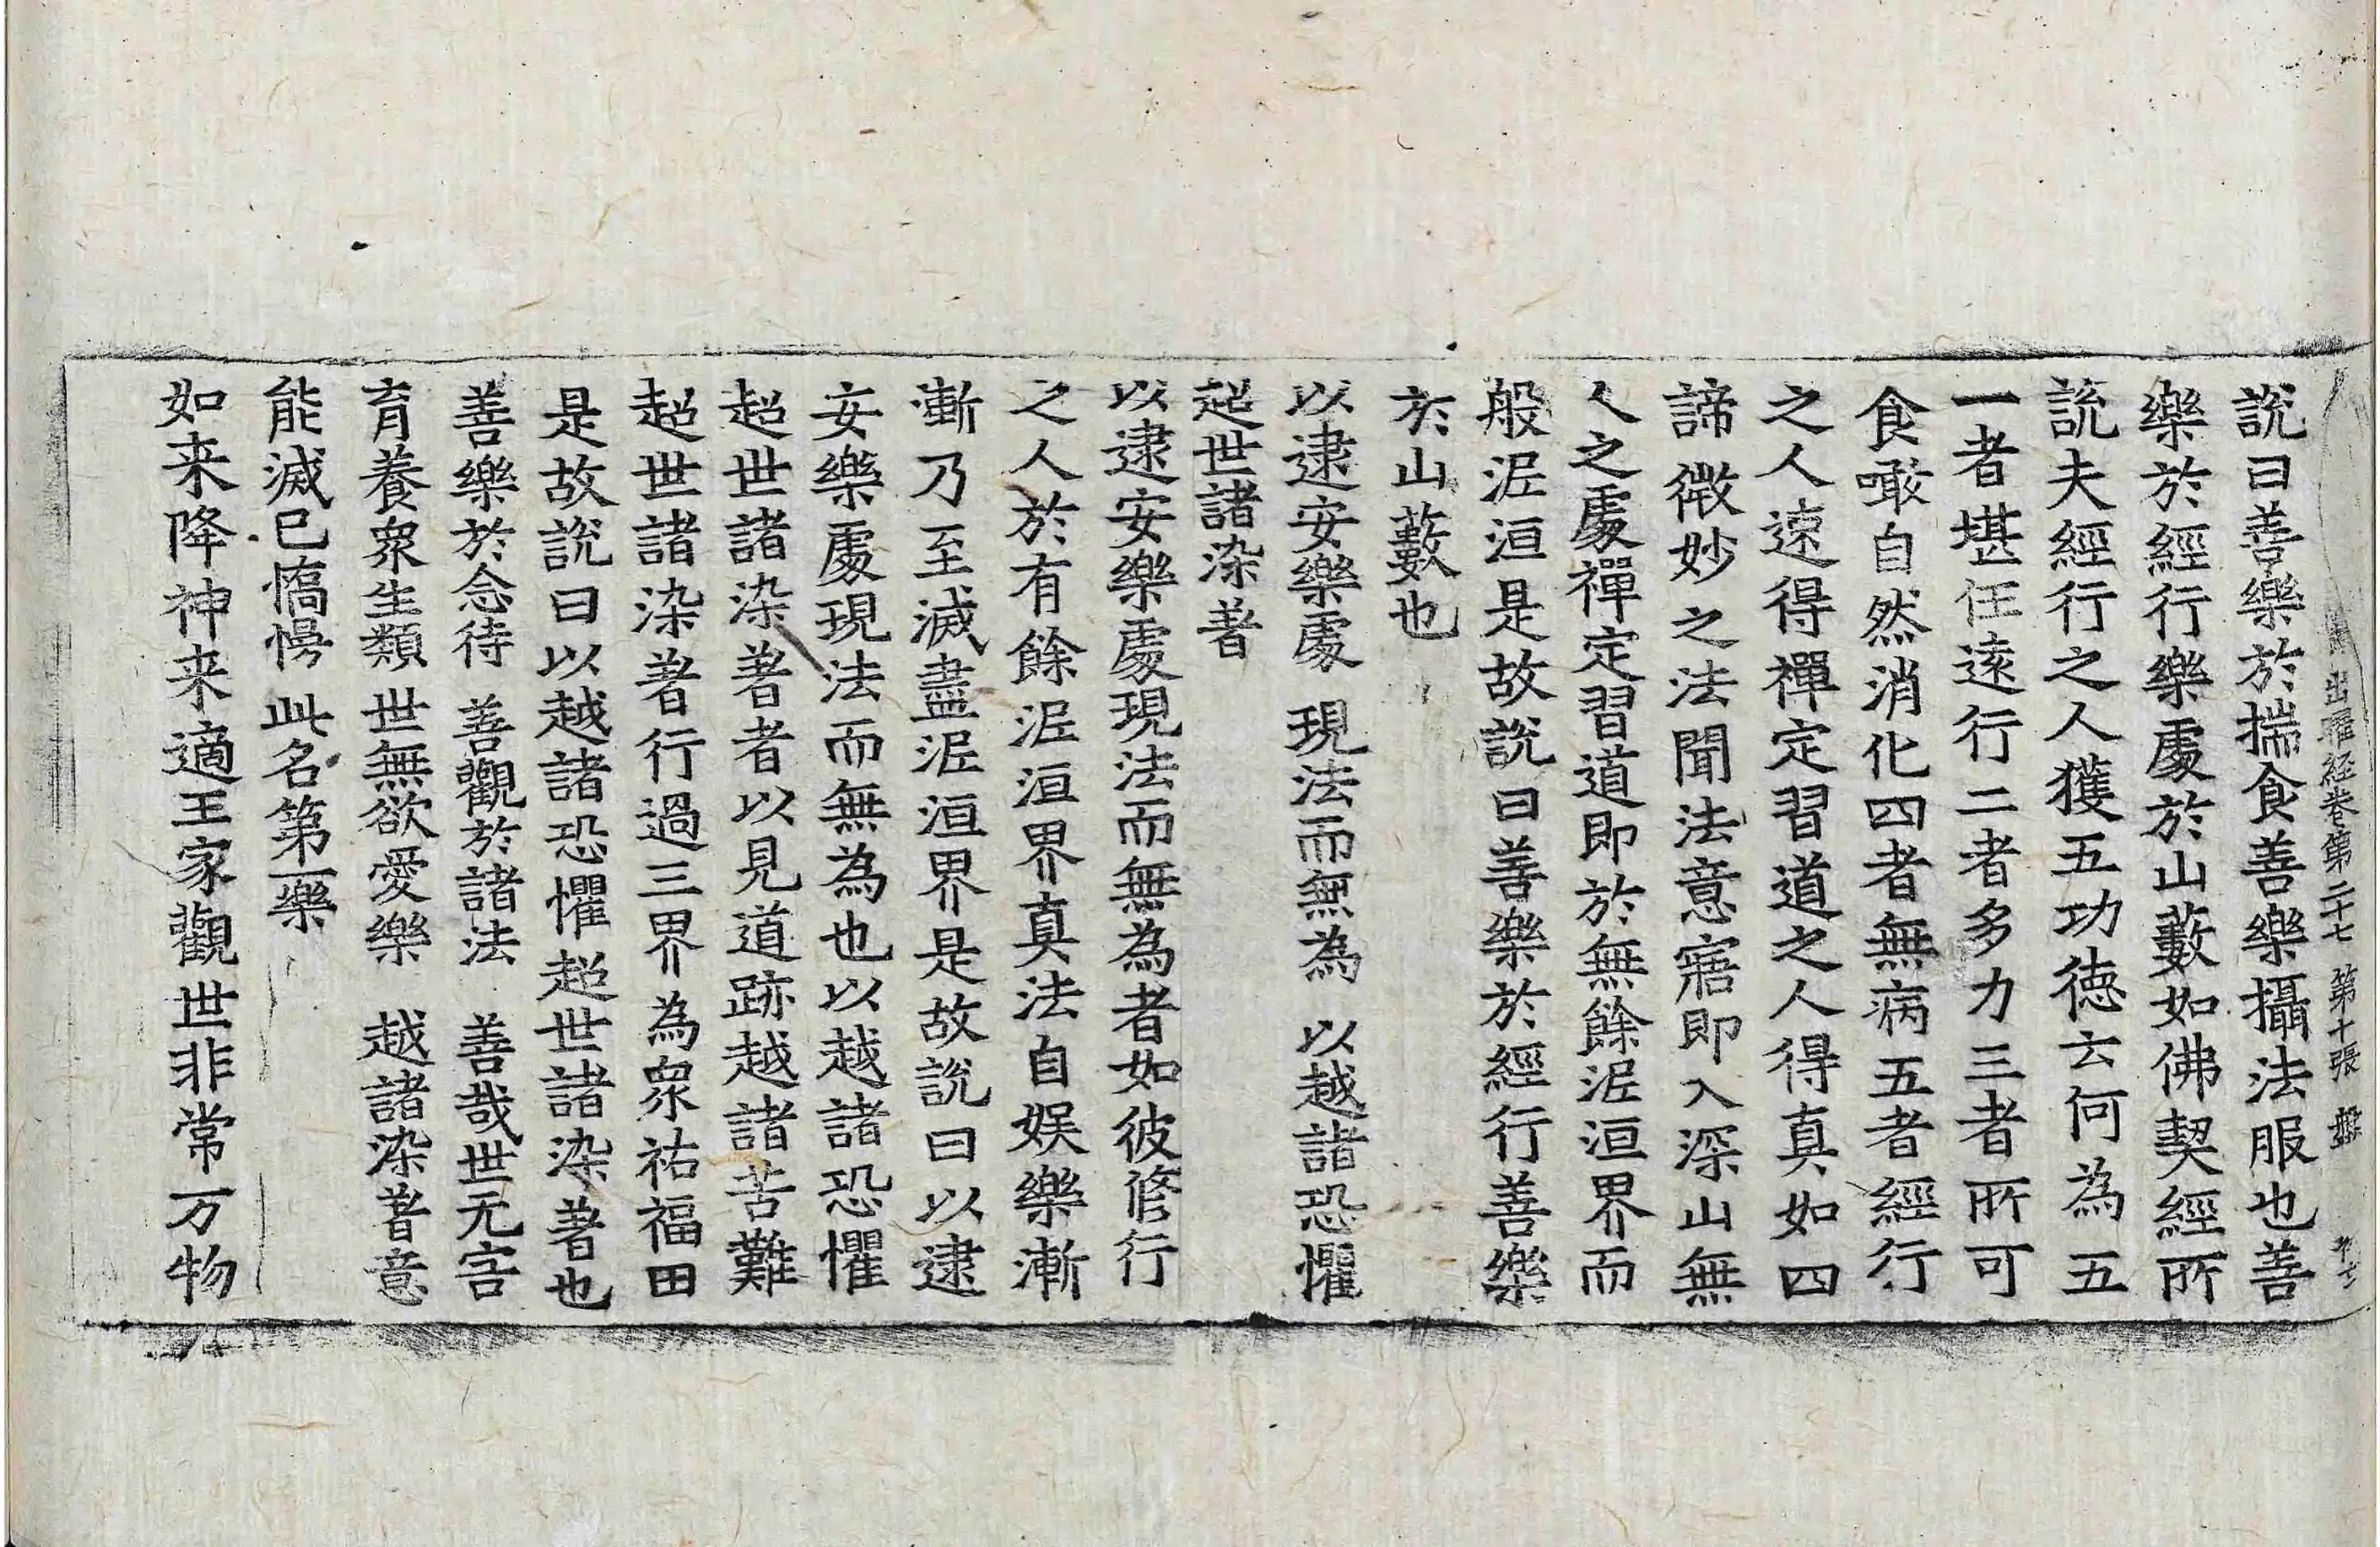 出曜経卷第二十七 第十張 盤
說曰善樂於揣食善樂攝法服也善
樂於經行樂處於山藪如佛契經所
說夫經行之人獲五功徳云何為五
一者堪任逺行二者多力三者所可
食噉自然消化四者無病五者經行
之人速得禪定習道之人得真如四
諦微妙之法聞法意寤即入深山無
人之處禪定習道即於無餘泥洹界而
般泥洹是故說曰善樂於經行善樂
於山藪也
以逮安樂處 現法而無為 以越諸恐懼
超世諸染著
以逮安樂處現法而無為者如彼修行
之人於有餘泥洹界真法自娛樂漸
漸乃至滅盡泥洹界是故說曰以逮
安樂處現法而無為也以越諸恐懼
超世諸染著者以見道跡越諸苦難
超世諸染著行過三界為衆祐福田
是故說曰以越諸恐懼超世諸染著也
善樂於念待 善觀於諸法 善哉世无害
育養衆生類 世無欲愛樂 越諸染著意
能滅已憍慢 此名第一樂
如来降神来適王家觀世非常万物